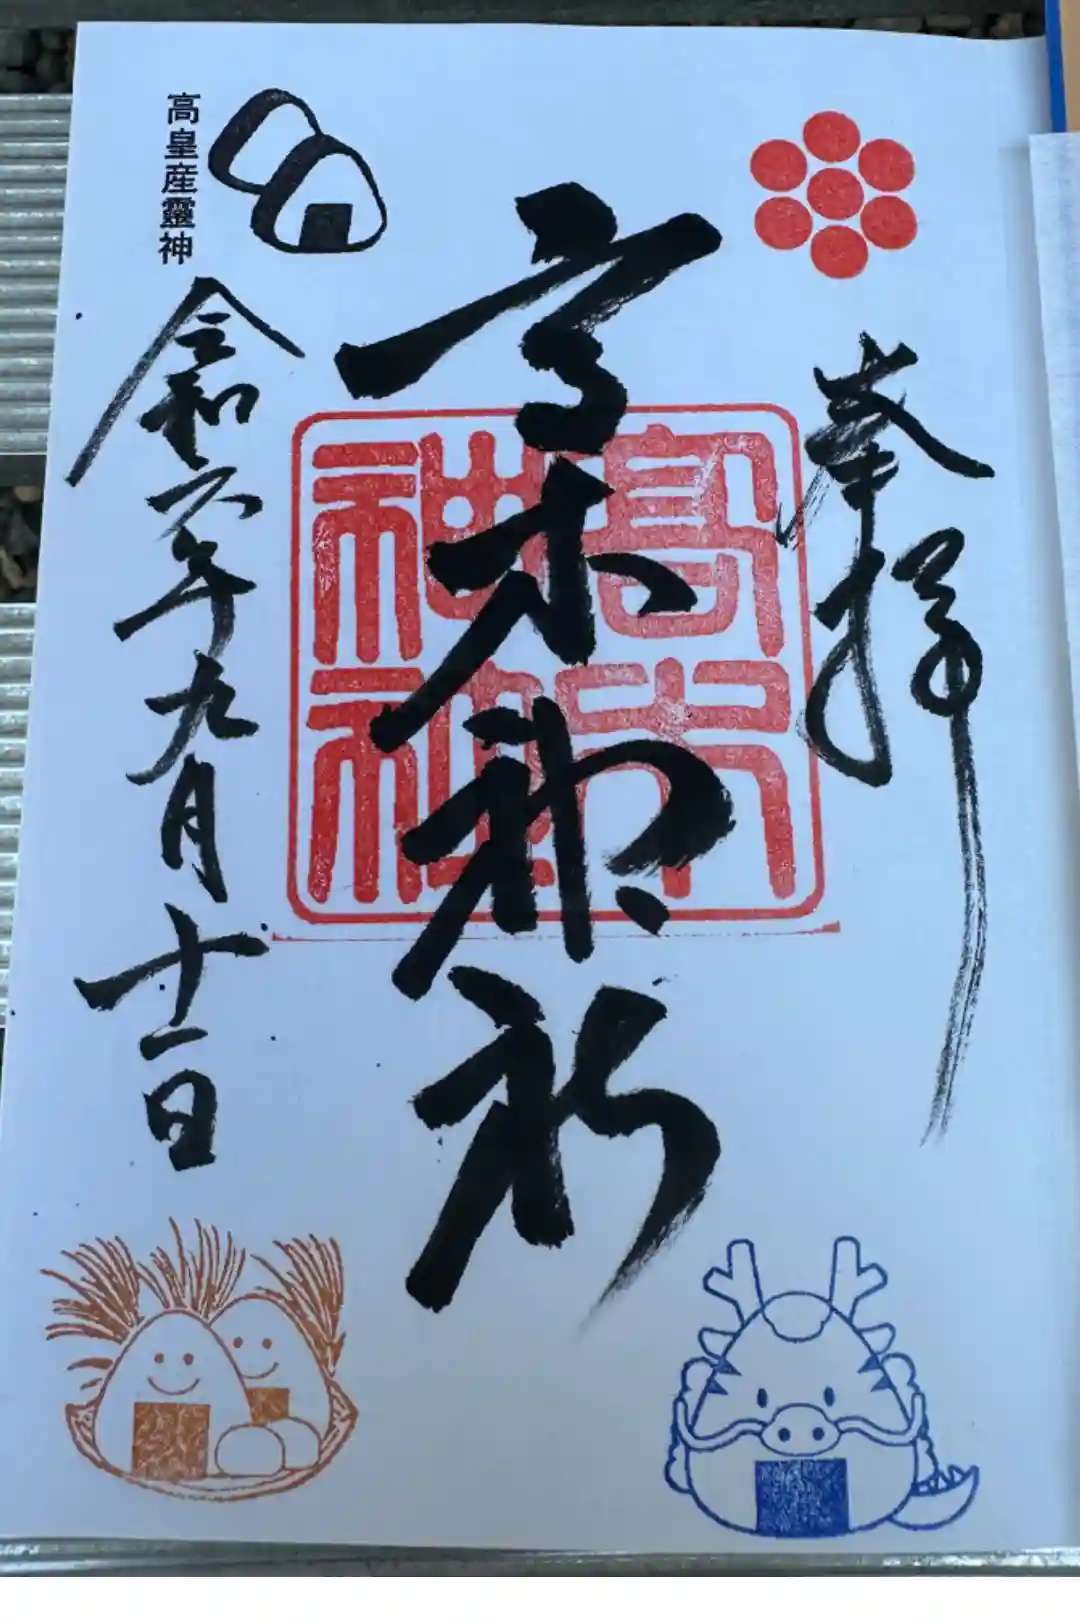 奉拝
高木神社
高木
神社
高皇産靈神
令和六年九月十一日